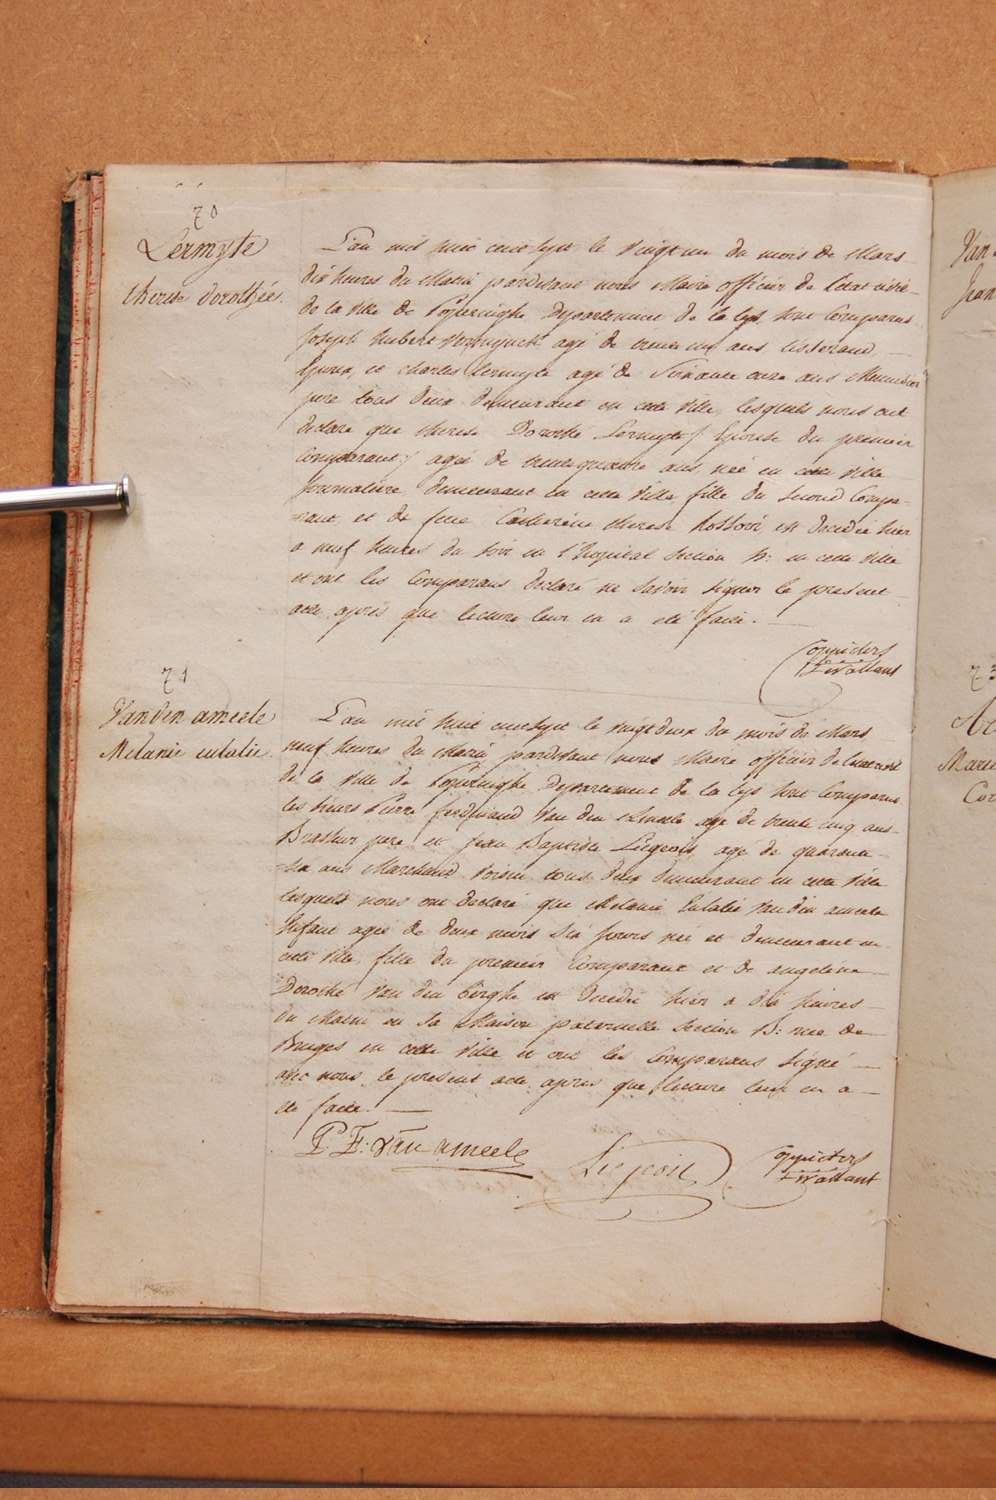 70
Lermyte
therese dorothée.
L'an mil huit cent sept le vingt un du mois de Mars
dix heures du Matin pardevant nous Maire officier de l'état civil
de la Ville de Poperinghe Département de la Lys sont Comparus
Joseph hubert agé de trente un ans tisserand
Epoux, et charles Lermyte agé de Soixante onze ans Menuisier
pere tous deux demeurant en cette Ville, lesquels nous ont
declaré que therese Dorothé Lermyte / Epouse du premier
Comparant / agée de trente quatre ans née en cette Ville
Journaliere demeurant en cette Ville fille du Second Compa-
rant, et de feue Catherine therese est decedée hier
a neuf heures du Soir en l'hopital Section B: en cette Ville
et ont les Comparans declaré ne Savoir signer le present
acte après que lecture leur en a été faite.
71
Vanden ameele
Melanie eulalie.
L'an mil huit cent sept le vingt deux du mois de Mars
neuf heures du Matin pardevant nous Maire officier de l'etat civil
de la Ville de Poperinghe Département de la Lys sont Comparus
les sieurs Pierre ferdinand Van den Ameele agé de trente cinq ans
Brasseur pere et Jean Baptiste Liegeois agé de quarante
six ans Marchand Voisin tous deux demeurant en cette Ville
lesquels nous ont declaré que Melanie Eulalie Van den ameele
Enfant agée de deux mois six jours née et demeurant en
cette Ville, fille du premier Comparant et de angeline
Dorothé Van den Berghe est decedée hier a dix heures
du Matin en Sa Maison paternelle Section B: rue de
Bruges en cette Ville et ont les Comparans Signé
avec nous le present acte apres que lecture leur en a
été faite.
P. F. Van ameele
Liegeois